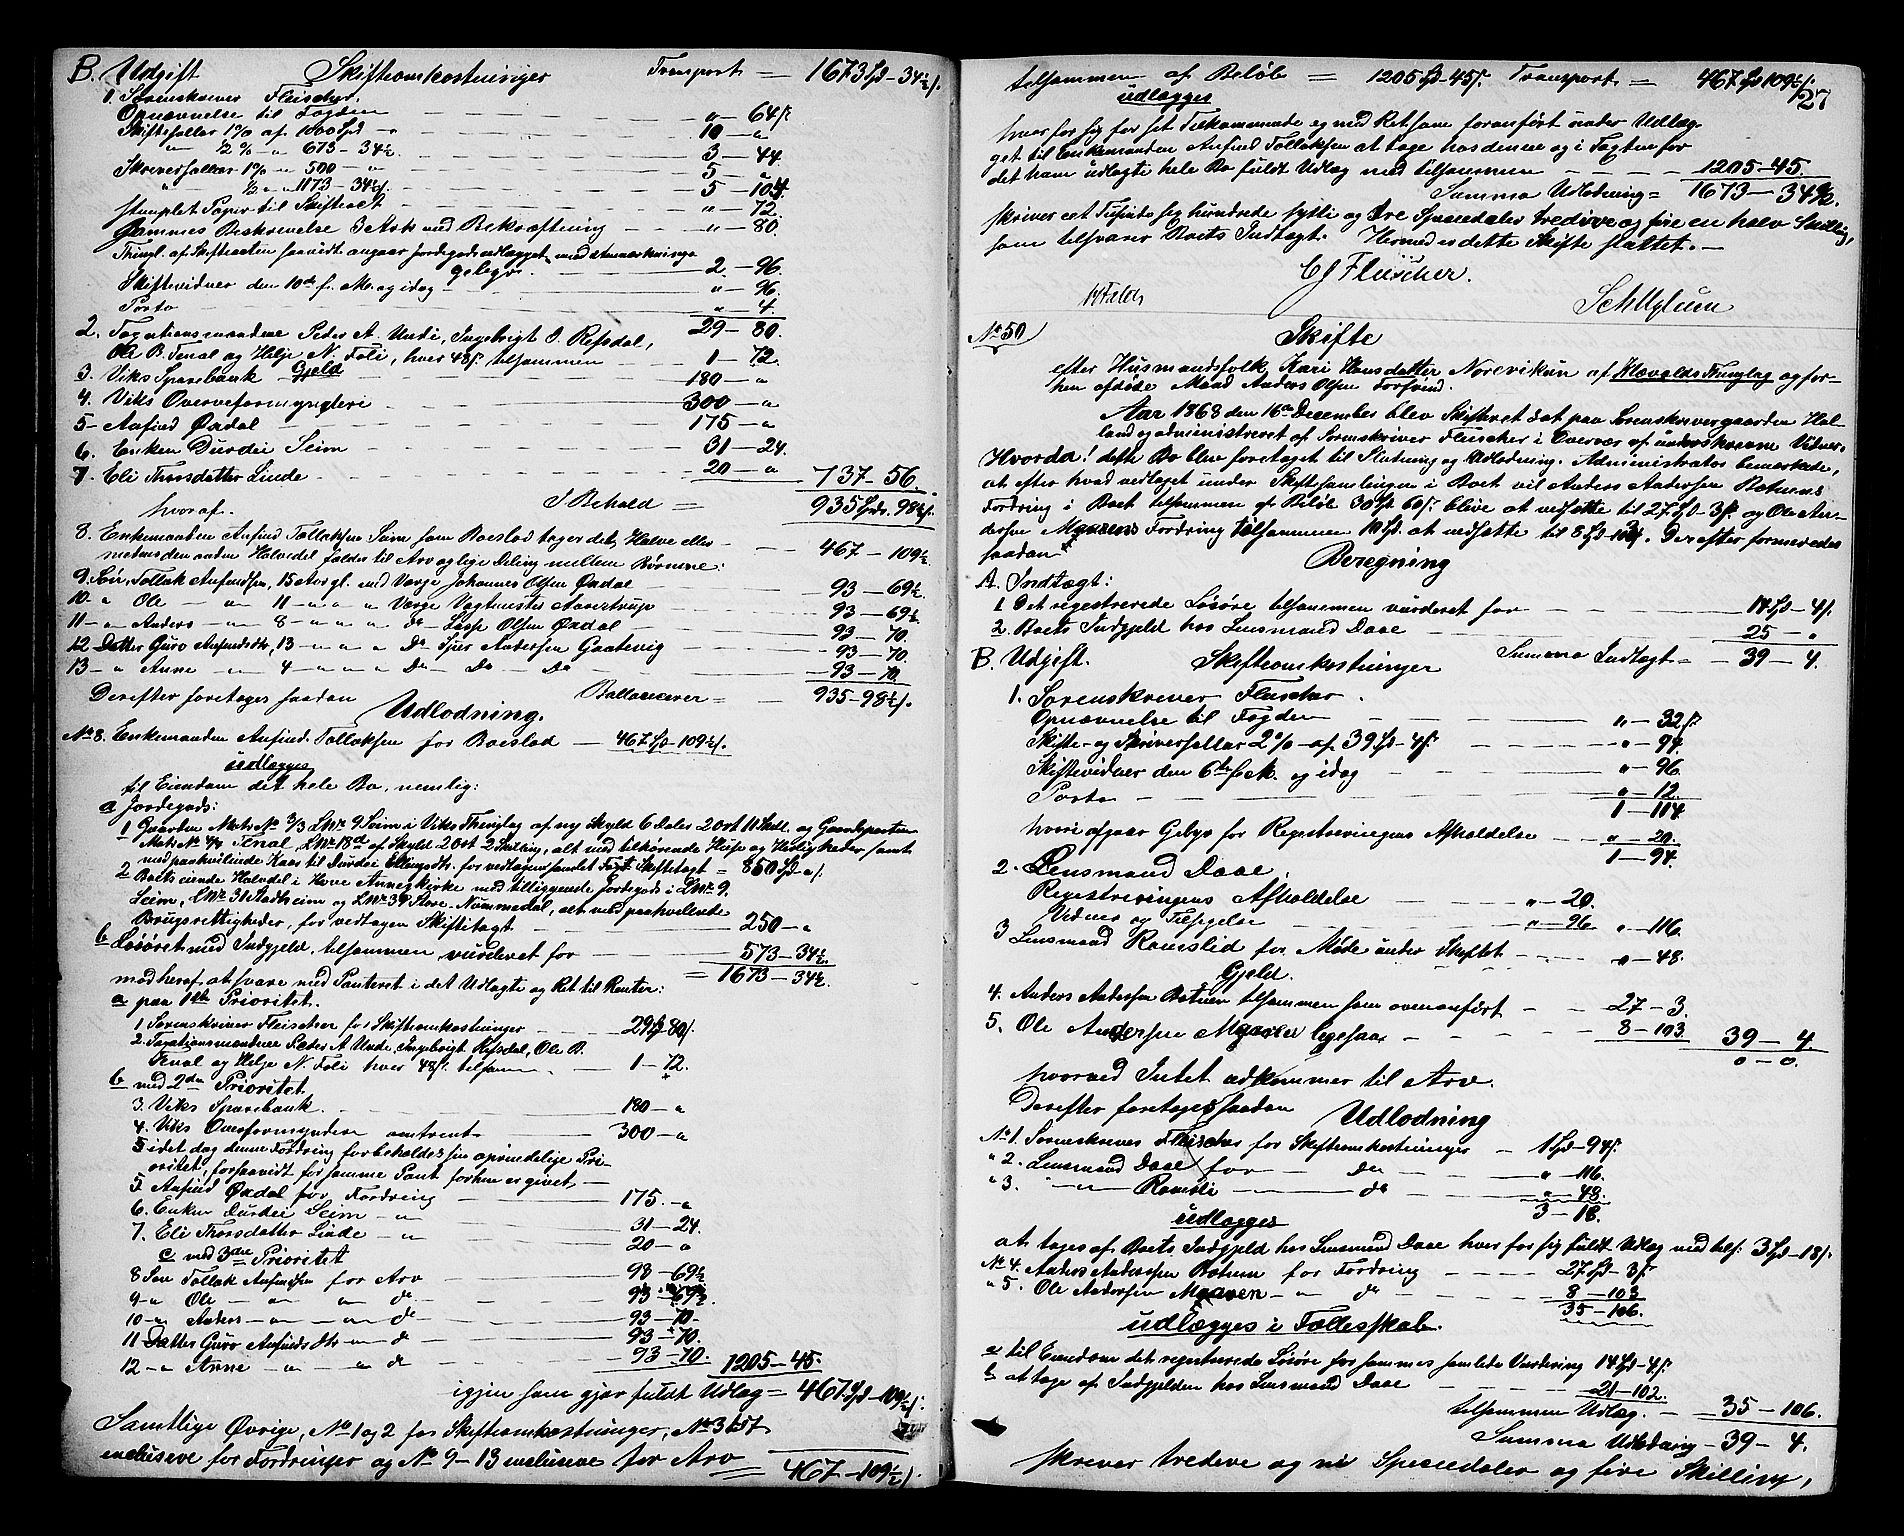 B. Udgift Skifteomkostninger Transport = 1673 Spd - 34½ s.
1. Sorenskriver Fleischer.
Opnævnelse til Fogden " - 64 s.
Skiftesallar 1% af 1000 Spd - " 10 - "
" ½ % - " 673 - 34½. 3 - 44.
Skriversallar 1% " 500 - " 5 - "
" ½ " " 1173 - 34½ s. 5 - 104.
stemplet Papir til Skifteact " - 72.
Sammes Beskrivelse 3 Ark med Bekræftning " - 80.
Thingl. af Skifteacten saavidt angaar Jordegodsudlægget med
gebyr 2 - 96.
Skiftevidner den 10de f. M. og idag " - 96.
Porto " - 4.
29 - 80.
2. Taxationsmændene Peder A. Undi, Ingebrigt O. Refsdal,
Ole B. Tenal og Helje N. Foli, hver 48 s. tilsammen 1 - 72.
Gjeld
3. Viks Sparebank 180 - "
4. Viks Overformynderi 300 - "
5 - Anfind Øxdal 175 - "
6. Enken Durdei Seim 31 - 24.
7. Eli Thorsdatter Linde 20 - " 737 - 56.
I Behold = 935 Spd. 98½ s.
hvoraf.
8. Enkemanden Anfind Tollaksen Seim som Boeslod tager det Halve eller 467 - 109½
medens den anden Halvedel falder til Arv og lige Deling mellem Børnene:
9. Søn, Tollak Anfindsen, 15 Aar gl. med Værge Johannes Olsen Øxdal 93 - 69½.
10 - " Ole - " 11 - " " " Værge Vagtmester Aasertrup 93 - 69½.
11 - " Anders - " 8 - " " " do Lasse Olsen Øxdal 93 - 70.
12 Datter Guro Anfindsdtr, 13 - " " " Do Sjur Andersen Gaatevig 93 - 70.
13 - " Anne " 4 - " " " Do Do Do 93 - 70.
Derefter foretages saadan Ballancerer = 935 - 98½ s.
Udlodning.
No 8. Enkemanden Anfind Tollaksen for Boeslod - 467 Spd - 109½ s.
udlægges
til Eiendom det hele Bo, nemlig:
a Jordegods:
1 Gaarden Matr No 3/3 LNr 9 Seim i Viks Thinglag af ny Skyld 6 Daler 2 ort 11 Skill. og Gaardeparten
Matr No Tenal, LNr 18d af Skyld 2 ort 2 Skilling, alt med tilhørende Huse og Herligheder samt
med paahvilende Kaar til Durdei Ellingsdtr, for vedtagen samlet Skiftetagt = 850 Spd - " s.
2 Boets eiende Halvdel i Hove Annexkirke med tilliggende Jordegods i LNr 9
Seim, LNr 31 Stadheim og LNr 39 Store-Nummedal, alt med paahvilende
Brugsrettigheder, for vedtagen Skiftetagt 250 - "
b Løsøret med Indgjeld, tilsammen vurderet for 573 - 34½.
= 1673 - 34½.
mod heraf at svare med Panteret i det Udlagte og Ret til Renter:
a paa 1ste Prioritet.
1 Sorenskriver Fleischer for Skifteomkostninger 29 Spd - 80 s.
2. Taxationsmændene Peder A. Unde, Ingebrigt Refsdal, Ole B.
Tenal og Helje N. Foli hver 48 s. tilsam. 1 - 72.
b med 2den Prioritet
3. Viks Sparebank 180 - "
4. Viks Overformynderi omtrent 300 - "
idet dog denne Fordring forbeholdes sin oprindelige Pri-
oritet, forsaavidt for samme Pant forhen er givet. -
5. Anfind Øxdal for Fordring 175 - "
6. Enken Durdei Seim - " 31 - 24.
7. Eli Thorsdatter Linde - " 20 - "
c med 3die Prioritet
8 Søn Tollak Anfindsen for Arv 93 - 69½
9 - " Ole - " " do 93 - 69½.
10 - " Anders - " " do 93 - 70 -
11 Datter Guro Anfindsdtr - " do 93 - 70.
12 - " Anne - " " do 93 - 70. 1205 - 45.
igjen som gjør fuldt Udlæg = 467 Spd - 109½ s.
Samtlige Øvrige, No 1 og 2 for Skifteomkostninger, No 3 til 7
inclusive for Fordringer og No 9 - 13 inclusive for Arv
= 467 - 109½ s.
27
tilsammen af Beløb = 1205 Spd - 45 s. Transport = 467 Spd 109½ s.
udlægges
hver for sig for sit Tilkommende og med Ret som foranført under Udlæg-
get til Enkemanden Anfind Tollaksen at tage hos denne og i Tagten for
det ham udlagte hele Bo fuldt Udlæg med tilsammen 1205 - 45.
Summa Udlodning = 1673 - 34½.
skriver et Tusinde sex hundrede sytti og tre Speciedaler tredive og fire en halv Skilling,
som tilsvarer Boets Indtægt. Hermed er dette Skifte sluttet. -
CJ Fleischer.
No 50
Skifte
efter Husmandsfolk, Kari Hansdatter Norevikøen af Klævolds Thinglag og for-
hen afdøde Mand Anders Olsen Forsund.
Aar 1868 den 16de December blev Skifteret sat paa Sorenskrivergaarden Hal-
land og administreret af Sorenskriver Fleischer i Overvær af underskrevne Vidner.
Hvorda! dette Bo blev foretaget til Slutning og Udlodning. Administrator bemærkede,
at efter hvad vedtaget under Skiftesamlingen i Boet vil Anders Andersen Botnens
Fordring i Boet tilsammen af Beløb 30 Spd 60 s. blive at nedsætte til 27 Spd - 3 s. og Ole An-
dersen Maarens Fordring tilsammen 10 Spd. at nedsætte til 8 Spd - 103 s. Derefter formeredes
saadan
Beregning
A. Indtægt:
1. Det registrerede Løsøre, tilsammen vurderet for 14 Spd - 4 s.
2. Boets Indgjeld hos Lensmand Daae 25 - "
Summa Indtægt = - 39 - 4.
B. Udgift. Skifteomkostninger
1. Sorenskriver Fleischer.
Opnævnelse til Fogden " - 32 s.
Skifte- og Skriversallar 2% - af 39 Spd - 4 s. " - 94.
Skiftevidner den 6te f. M. og idag " - 96.
Porto " - 12.
1 - 114.
hvori afgaar Gebyr for Registreringens Afholdelse " - 20.
1 - 94.
2. Lensmand Daae.
Registreringens Afholdelse " - 20.
Vidner og Tilsigelse " - 96 " - 116.
3 Lensmand Romslid for Møde under Skiftet " - 48.
Gjeld.
4. Anders Andersen Botnen tilsammen som ovenanført 27 - 3.
5. Ole Andersen Maaren ligesaa 8 - 103. 39 - 4.
0 - 0.
hvorved Intet udkommer til Arv.
Derefter foretages saadan Udlodning
No 1. Sorenskriver Fleischer for Skifteomkostninger - 1 Spd - 94 s.
" 2. Lensmand Daae for - do " - 116.
" 3. " - " - Romsli - do " - 48.
3 - 18.
udlægges
at tages af Boets Indgjeld hos Lensmand Daae hver for sig fuldt Udlæg med tils. 3 Spd - 18 s.
No 4. Anders Anderssen Botnen for Fordring 27 Spd - 3 s.
" 5. Ole Andersen Maaren - " do 8 - 103
35 - 106.
udlægges i Fællesskab.
a til Eiendom det registrerede Løsøre for sammes samlede Vurdering 14 Spd - 4 s.
b at tage af Indgjelden hos Lensmand Daae 21 - 102.
tilsammen Udlæg. - 35 - 106.
Summa Udlodning - 39 - 4.
skriver tredive og ni Speciedaler og fire Skilling,